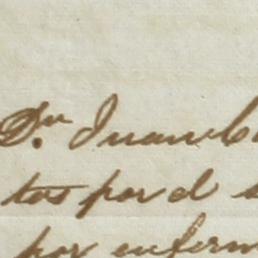 Dn. Juan C
tos por d
por enferm